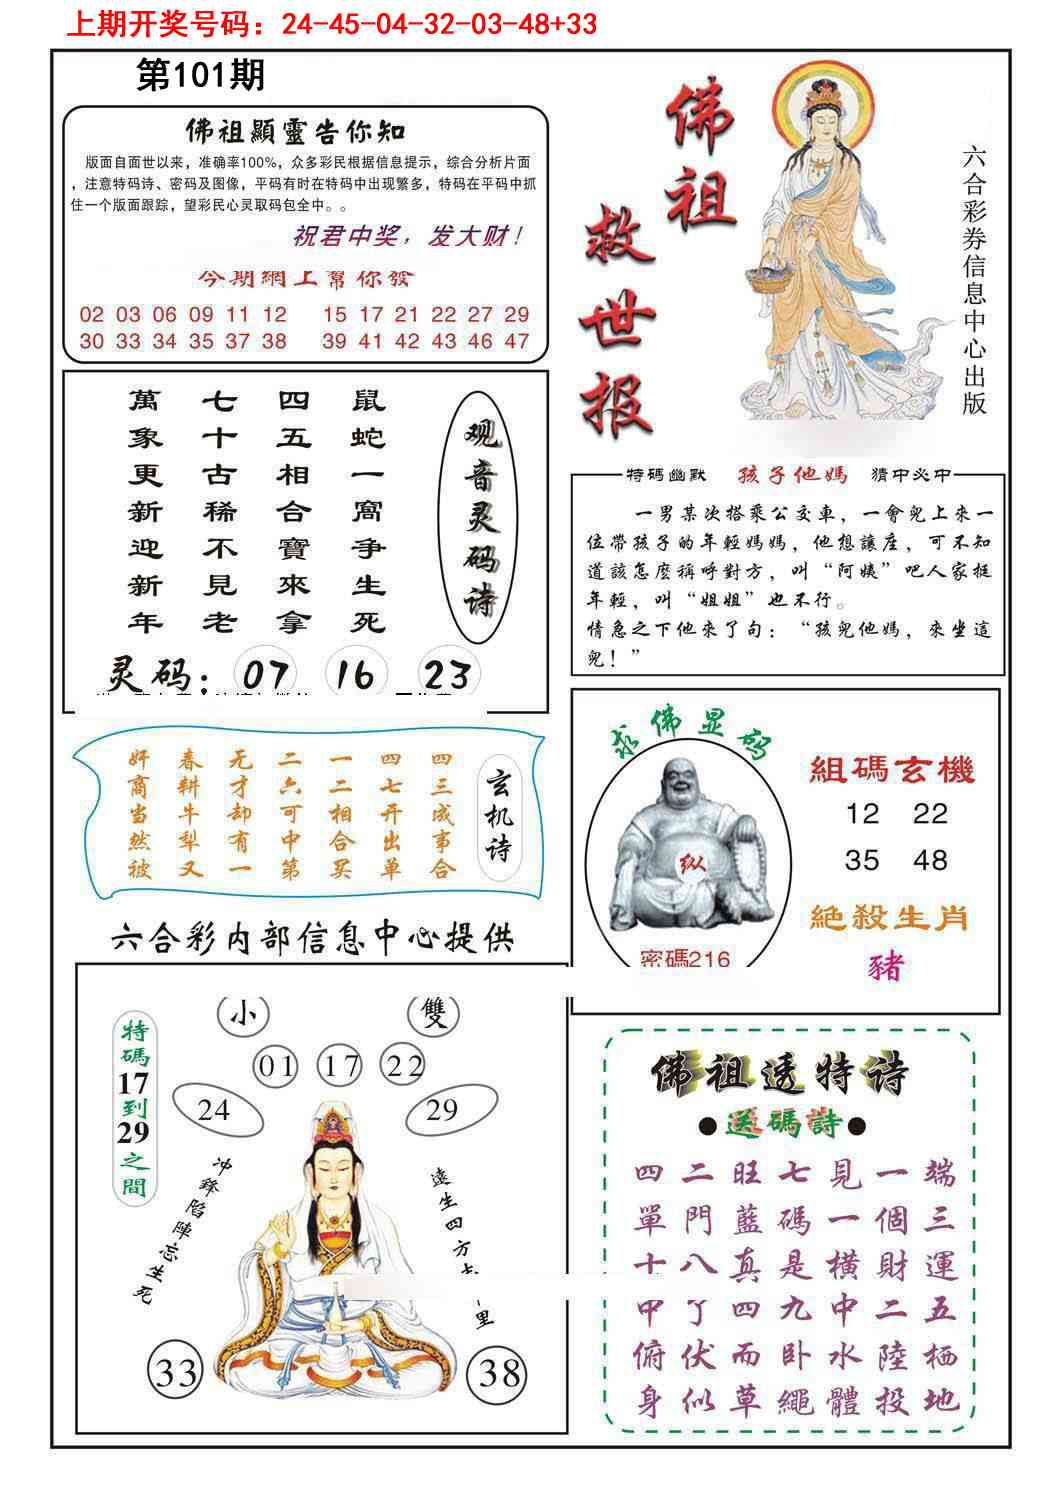 上期开奖号码：24-45-04-32-03-48+33
第101期
佛祖顯靈告你知
版面自面世以来，准确率100%，众多彩民根据信息提示，综合分析片面
，注意特码诗、密码及图像，平码有时在特码中出现繁多，特码在平码中抓
住一个版面跟踪，望彩民心灵取码包全中。。
祝君中奖，发大财！
今期網上幫你發
02 03 06 09 11 12 15 17 21 22 27 29
30 33 34 35 37 38 39 41 42 43 46 47
佛祖
救世报
六合彩券信息中心出版
观音灵码诗
鼠蛇一窩争生死
四五相合寶來拿
七十古稀不見老
萬象更新迎新年
灵码：07 16 23
特碼幽默 孩子他媽 猜中必中
一男某次搭乘公交車，一會兒上來一
位帶孩子的年輕媽媽，他想讓座，可不知
道該怎麽稱呼對方，叫“阿姨”吧人家挺
年輕，叫“姐姐”也不行。
情急之下他來了句：“孩兒他媽，來坐這
兒！”
玄机诗
四三成事合
四七开出单
一二相合买
二六可中第
无才却有一
春耕牛犁又
奸商当然彼
求佛显码
纵
密碼216
組碼玄機
12 22
35 48
絕殺生肖
豬
六合彩内部信息中心提供
特碼17到29之間
小 雙
01 17 22
24 29
冲鋒陷陣忘生死
遠生四方
里
33 38
佛祖透特诗
●送碼詩●
端三運五栖地
一個財二陸投
見一横中水體
七碼是九卧繩
旺藍真四而草
二門八丁伏似
四單十甲俯身